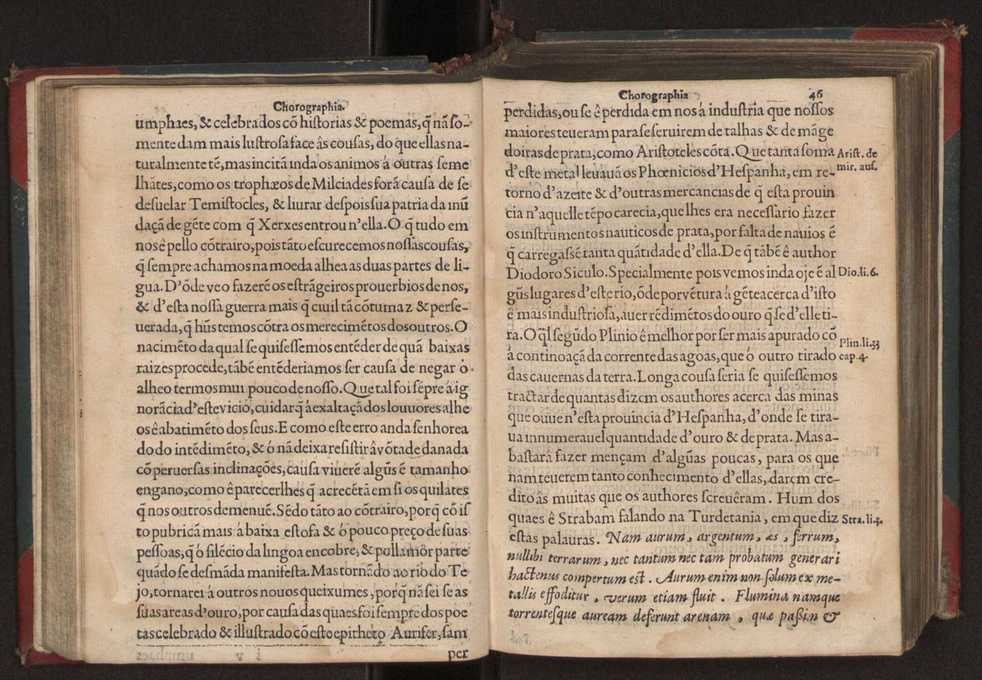 Chorographia.
umphaes, & celebrados cõ historias & poemas, q̃ nã so-
mente dam mais lustrosa face ás cousas, do que ellas na-
turalmente tẽ, mas incitã inda os animos á outras seme
lhãtes, como os trophæos de Milciades forã causa de se
desuelar Temistocles, & liurar despois sua patria da inũ
daçã de gẽte com q̃ Xerxes entrou n'ella. O q̃ tudo em
nos ê pello cõtrairo, pois tãto escurecemos nossas cousas,
q̃ sempre achamos na moeda alhea as duas partes de li-
gua. D'õde veo fazerẽ os estrãgeiros prouerbios de nos,
& d'esta nossa guerra mais q̃ ciuil tã cõtumaz & perse-
uerada, q̃ hũs temos cõtra os merecimẽtos dos outros. O
nacimẽto da qual se quisessemos entẽder de quã baixas
raizes procede, tãbẽ entẽderiamos ser causa de negar ò
alheo termos mui pouco de nosso. Que tal foi sẽpre á ig
norãcia d'este vicio, cuidar q̃ á exaltaçã dos louuores alhe
os ê abatimẽto dos seus. E como este erro anda senhorea
do do intẽdimẽto, & ó nã deixa resistir â võtade danada
cõ peruersas inclinações, causa viuerẽ algũs ẽ tamanho
engano, como ê parecerlhes q̃ acrecẽtã em si os quilates
q̃ nos outros demenuẽ. Sẽdo tãto ao cõtrairo, porq̃ cõ is
to pubricã mais á baixa estofa & ó pouco preço de suas
pessoas, q̃ ó silẽcio da lingoa encobre, & polla mòr parte
quãdo se desmãda manifesta. Mas tornãdo ao rio do Te
jo, tornarei á outros nouos queixumes, porq̃ nã sei se as
suas areas d'ouro, por causa das quaes foi sempre dos poe
tas celebrado & illustrado cõ esto epitheto Aurifer, sam
per
Chorographia 46
perdidas, ou se ê perdida em nos á industria que nossos
maiores teueram para se seruirem de talhas & de mãge
doiras de prata, como Aristoteles cõta. Que tanta soma
Arist. de
mir. aus.
d'este metal leuauã os Phœnicios d'Hespanha, em re-
torno d'azeite & d'outras mercancias de q̃ esta prouin
cia n'aquelle tẽpo carecia, que lhes era necessario fazer
os instrumentos nauticos de prata, por falta de nauios ẽ
q̃ carregassẽ tanta quãtidade d'ella. De q̃ tãbẽ ê author
Diodoro Siculo. Specialmente pois vemos inda oje ẽ al
Dio. li. 6.
gũs lugares d'este rio, õde por vẽtura á gẽte acerca d'isto
ê mais industriosa, auer rẽdimẽtos do ouro q̃ se d'elle ti-
ra. O q̃l segũdo Plinio ê melhor por ser mais apurado cõ
Plin. li. 33
cap. 4.
á continoaçã da corrente das agoas, que ó outro tirado
das cauernas da terra. Longa cousa seria se quisessemos
tractar de quantas dizem os authores acerca das minas
que ouue n'esta prouincia d'Hespanha, d'onde se tira-
ua innumerauel quantidade d'ouro & de prata. Mas a-
bastará fazer mençam d'algũas poucas, para os que
nam teuerem tanto conhecimento d'ellas, darem cre-
dito âs muitas que os authores screuêram. Hum dos
quaes ê Strabam falando na Turdetania, em que diz
Stra. li. 4.
estas palauras. Nam aurum, argentum, æs, ferrum,
nullibi terrarum, nec tantum nec tam probatum generari
hactenus compertum est. Aurum enim non solum ex me-
tallis effoditur, verum etiam fluit. Flumina namque
torrentesque auream deferunt arenam, quæ paßin &